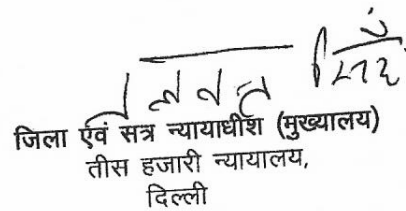 जिला एवं सत्र न्यायाधीश (मुख्यालय)
तीस हजारी न्यायालय,
दिल्ली